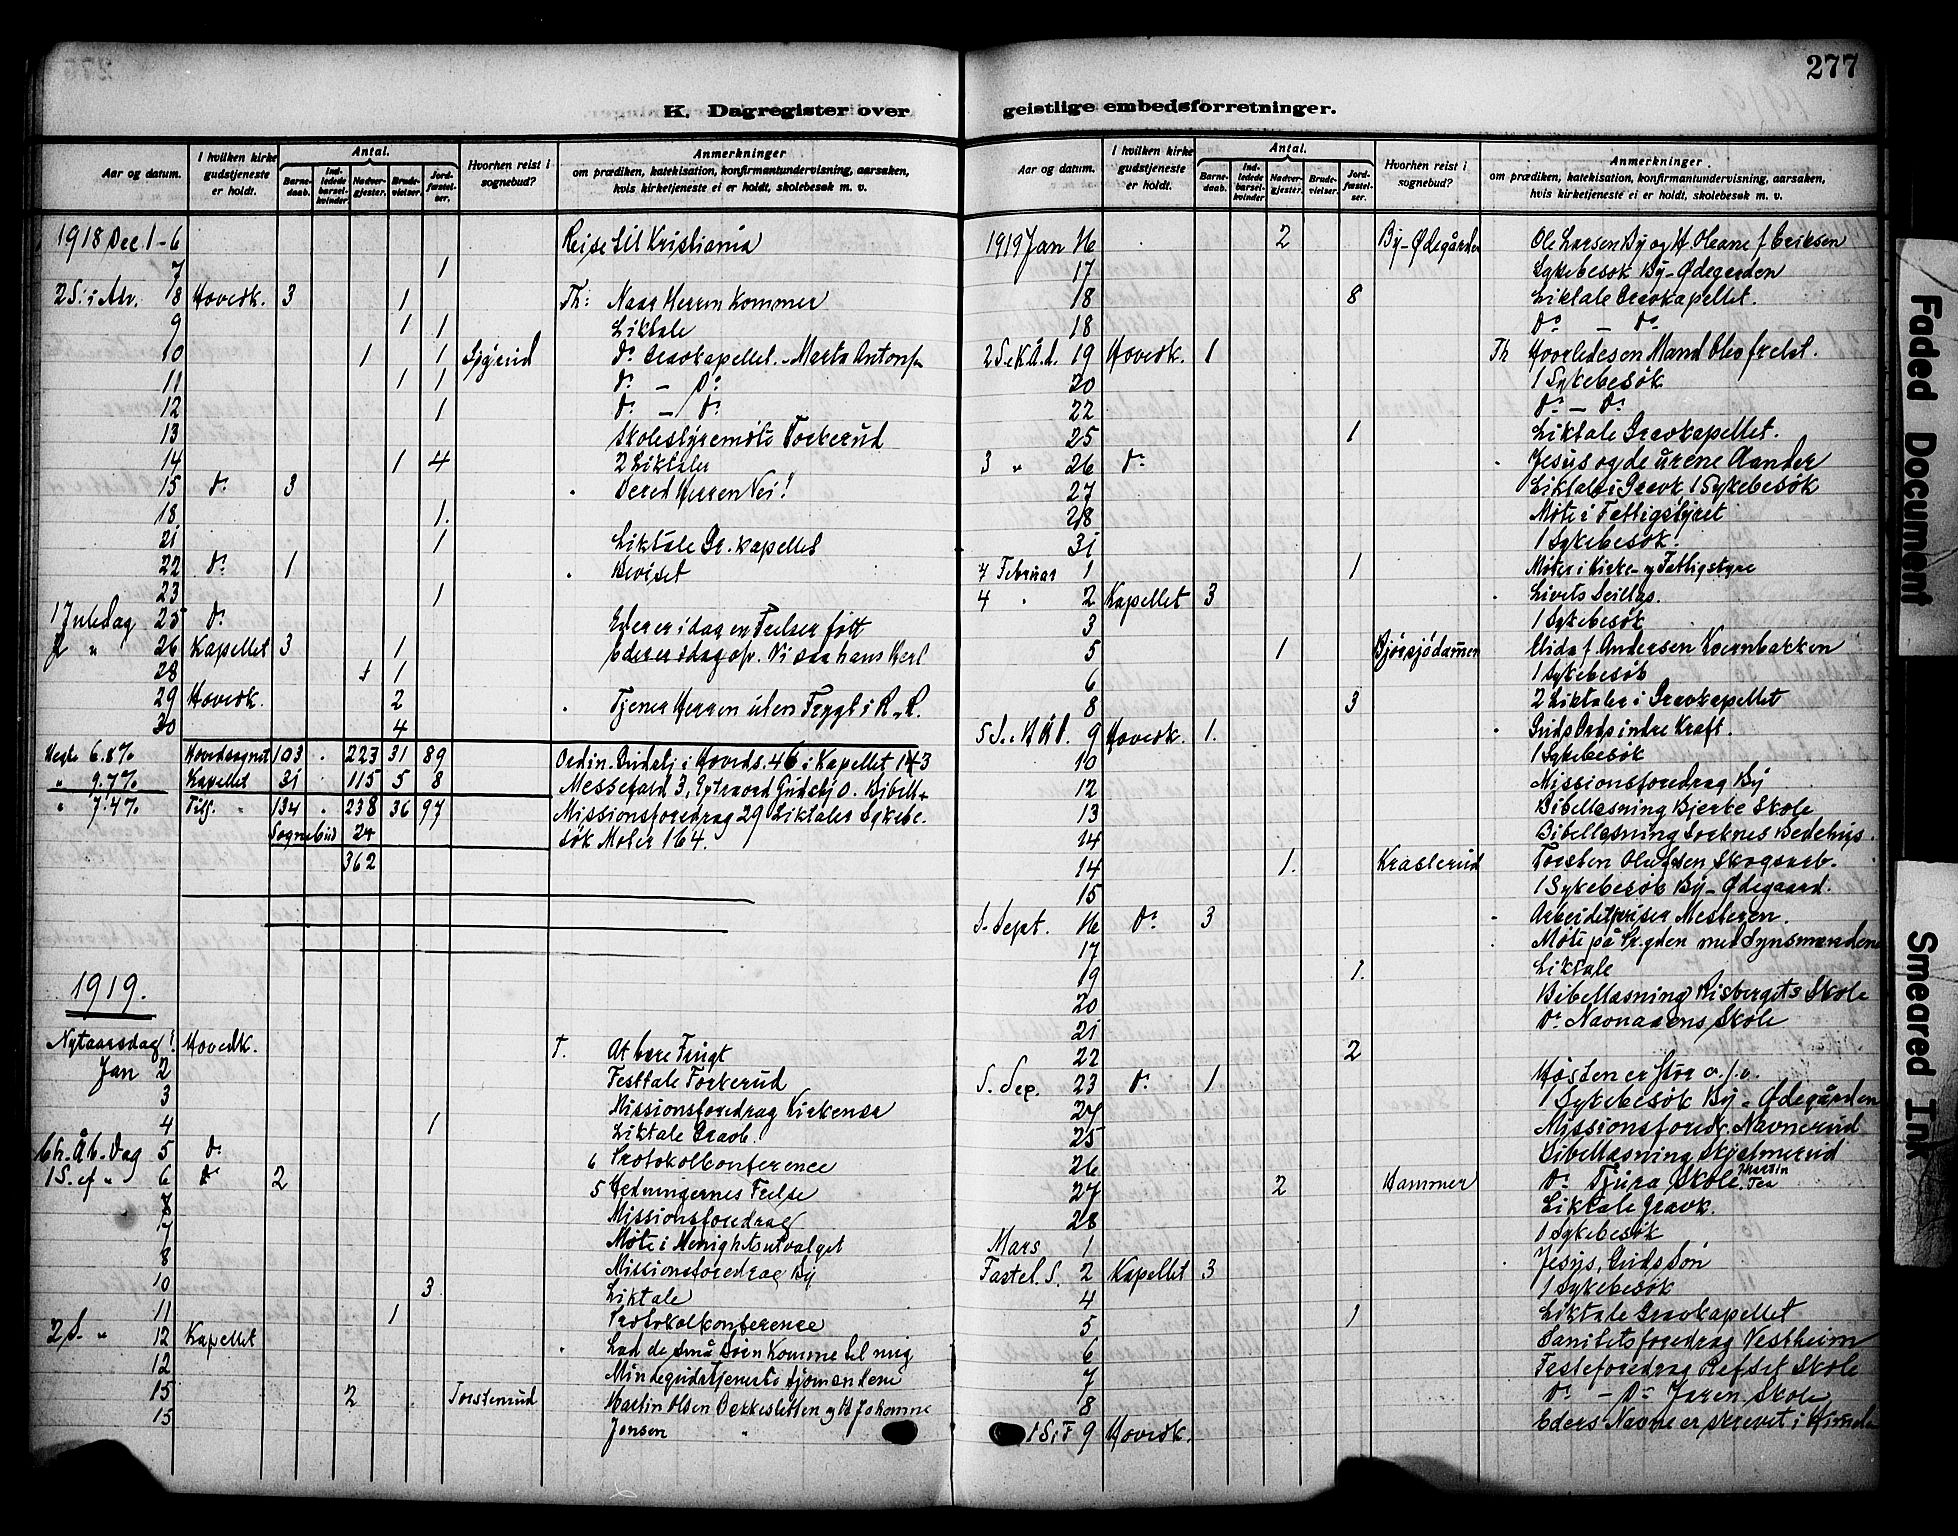 277
K. Dagregister over
geistlige embedsforretninger.
Aar og datum.
I hvilken kirke gudstjeneste er holdt.
Antal.
Barnedaab.
Indledede barselkvinder
Nadvergjester.
Brudevielser.
Jordfæstelser.
Hvorhen reist i sognebud?
Anmerkninger
om prædiken, katekisation, konfirmantundervisning, aarsaken,
hvis kirketjeneste ei er holdt, skolebesøk m. v.
1918 Dec. 1-6 Reise til Kristiania
7 1
2 S. i Adv. 8 Hovedk. 3 1 Th: Naar Herren kommer
9 1 1 Liktale
10 1 1 Do Gravkapellet. Marta
11 1 1 Do - Do
12 1 Do - Do
13 Skolestyremöte Torkerud
14 1 4 2 Liktaler
15 Do 3 Bered Herren Vei!
18 1.
21 1 Liktale Gr. kapellet
22 Do 1 Beviset
23 1
1 Juledag 25 Do Eder er i dag en Frelser född
2 " 26 Kapellet 3 1 Eder er i dag
28 1 1
29 Hovedk. 2 Tjener Herren uten Frygt i
30 4
6.8% Hovedsognet 103 . 223 31 89 Ordin. Gudstj i Hoveds. 46 i Kapellet 143
" 9.7% Kapellet 31 115 5 8 Messefald 3,
" 7.4% Tils. " 134 . 238 36 97 Missionsforedrag 29 Liktaler Sykebe-
Sognebud 24 søk Møter 164.
362
1919.
Nytaarsdag 1 Hovedk. T. At bære Frugt
Jan 2 Festtale Torkerud
3 Missionsforedrag Kirkenær
4 1 Liktale Gravk.
Kr. Åb. Dag 5 Do 6 Protokolkonference
1 S. ef " 6 Do 2 5 Hedningernes Frelse
7 Missionsforedrag
7 Møte i Menighetsutvalget
8 Missionsforedrag By
10 3 Liktale
11 1 Protokolkonference
2 S. " 12 Kapellet Lad de små Børn komme til mig
12 Mindegudstjeneste
15 2 Torstenrud Martin Olsen
15 Jensen "
Aar og datum.
I hvilken kirke gudstjeneste er holdt.
Antal.
Barnedaab.
Indledede barselkvinder
Nadvergjester.
Brudevielser.
Jordfæstelser.
Hvorhen reist i sognebud?
Anmerkninger.
om prædiken, katekisation, konfirmantundervisning, aarsaken,
hvis kirketjeneste ei er holdt, skolebesøk m. v.
1919 Jan 16 2 By-Ødegården Ole Larsen By og
17 Sykebesøk By-Ødegården
18 8 Liktale Gravkapellet.
18 Do - Do
2 S. e K.Å.d. 19 Hovedk. 1 Th Hvorledes en Mand blev frelst.
20 1 Sykebesök
22 Do - Do
25 1 Liktale Gravkapellet.
3 " 26 Do Jesus og de urene Aander
27 Liktale i Gravk 1 Sykebesök
28 Møte i Fattigstyret
31 1 Sykebesøk!
Februar 1 1 Møter i Kirke- og Fattigstyre
4 " 2 Kapellet 3 Livets Seillas.
3 1 Sykebesök
5 1 Andersen Kvernbakken
6 1 Sykebesök
8 3 2 Liktaler i Gravkapellet
9 Hovedk. 1. Guds Ords indre Kraft.
10 1 Sykebesök
12 Missionsforedrag By
13 Bibellæsning Bjerke Skole
14 Bibellæsning Bedehus.
14 1. Krasterud Torsten Skogsarb.
15 1 Sykebesök By-Ødegaard.
S. Sept. 16 Do 3 Arbeidet priser Mesteren.
17 Møte på med Synsmændene
19 1. Liktale
20 Bibellæsning Risbergets Skole
21 Do Navnaaens Skole
22 2
S. Sex. 23 Do 1 Høsten er stor o.s.v.
24 1 Sykebesök By-Ødegården
25 Missionsforedr. Navnerud
26 Bibellæsning
27 2 Hammer Do Tjura Skole.
28 Liktale Gravk.
Mars 1 1 Sykebesøk
Fastel. S. 2 Kapellet 3 Jesus, Guds Søn
4 1 Sykebesök
5 1 Liktale Gravkapellet
6 Sanitetsforedrag Vestheim
7 Festeforedrag Refset Skole
8 Do - Do Jaren Skole
1 S. i F 9 Hovedk. Eders Navne er skrevet i
Faded Document
Smeared Ink